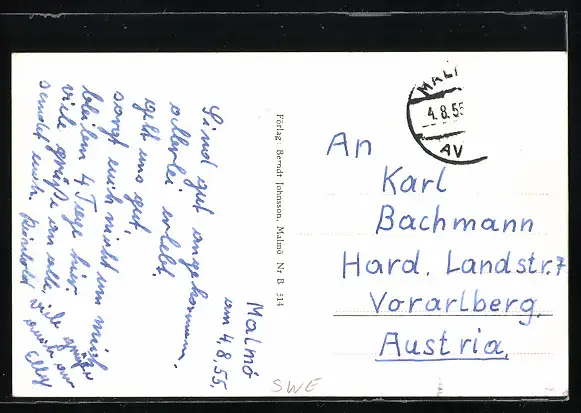 Malmö
am 4.8.55.
Sind gut angekommen.
allerlei erlebt.
geht uns gut,
sorgt euch nicht um mich
bleiben 4 Tage hier.
viele grüße an alle,
sendet euch Reinhold
viele grüße auch von
Elly
Förlag: Berndt Johnsson, Malmö Nr B 314
MAL
4.8.55
AV
An
Karl
Bachmann
Hard, Landstr. 7
Vorarlberg,
Austria,
SWE